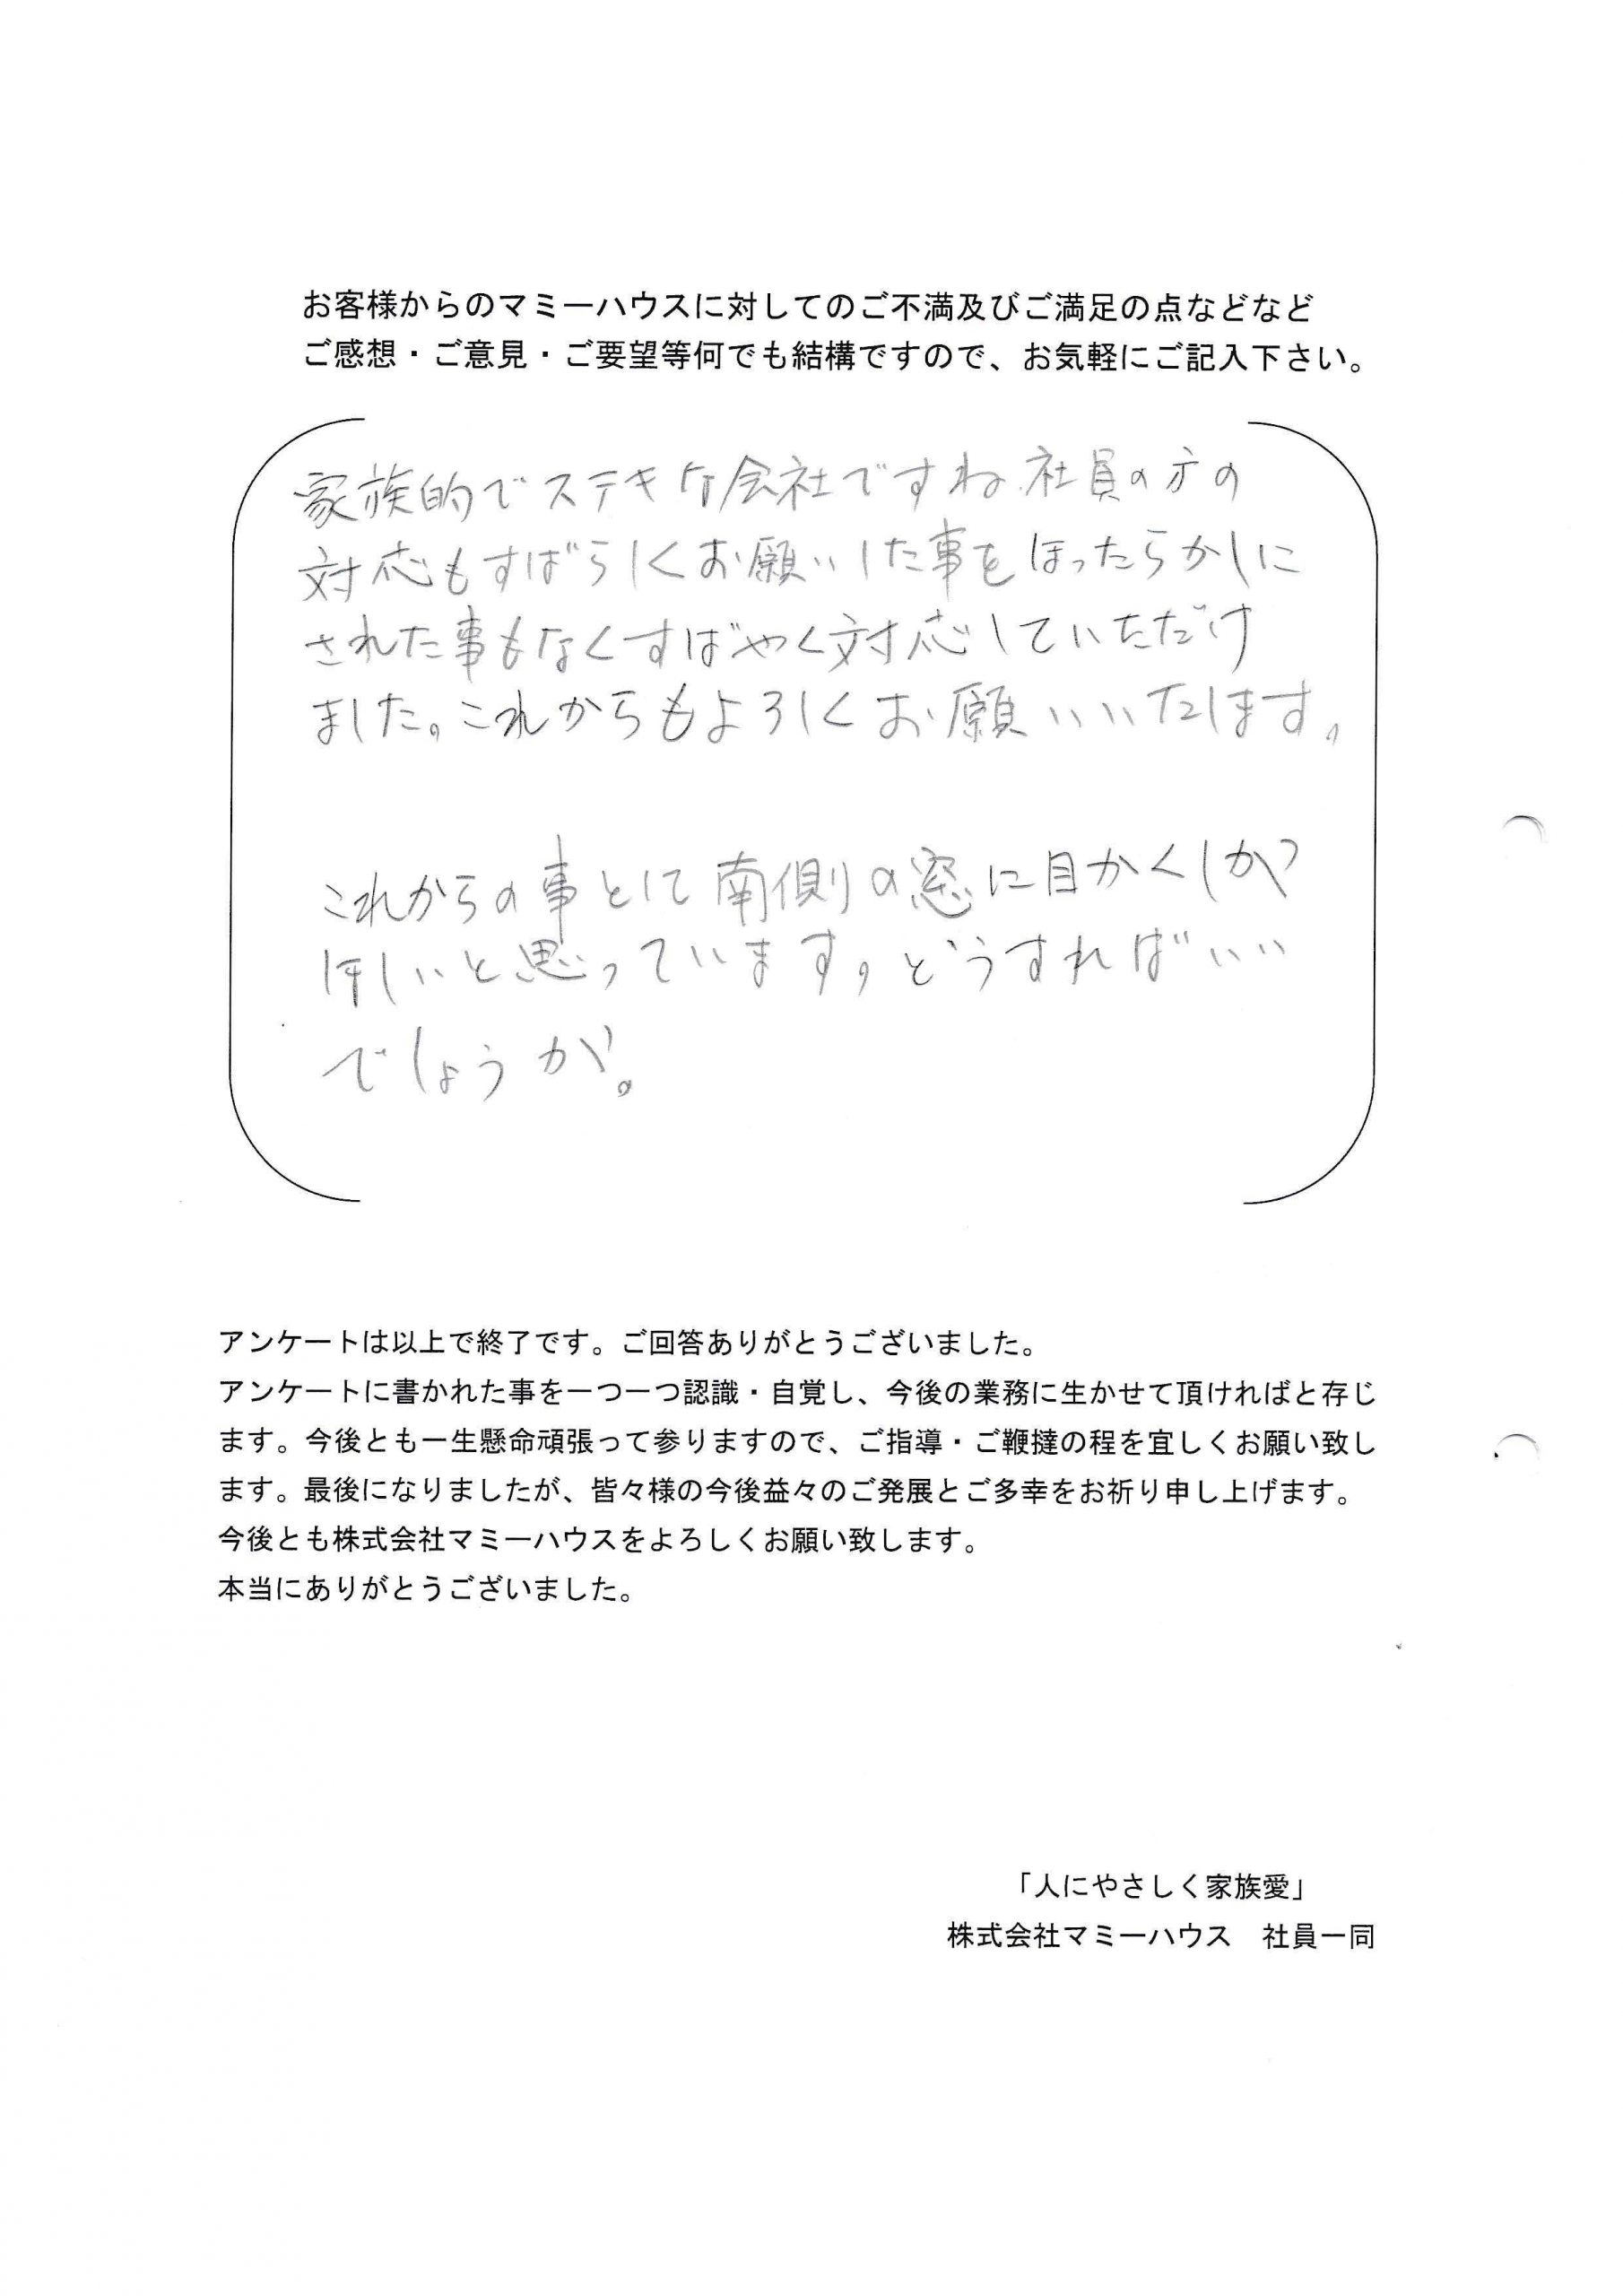 お客様からのマミーハウスに対してのご不満及びご満足の点などなど
ご感想・ご意見・ご要望等何でも結構ですので、お気軽にご記入下さい。
家族的でステキな会社ですね 社員の方の
対応もすばらしくお願いした事をほったらかしに
された事もなくすばやく対応していただけ
ました。これからもよろしくお願いいたします。
これからの事として南側の窓に目かくしが
ほしいと思っています。どうすればいい
でしょうか。
アンケートは以上で終了です。ご回答ありがとうございました。
アンケートに書かれた事を一つ一つ認識・自覚し、今後の業務に生かせて頂ければと存じ
ます。今後とも一生懸命頑張って参りますので、ご指導・ご鞭撻の程を宜しくお願い致し
ます。最後になりましたが、皆々様の今後益々のご発展とご多幸をお祈り申し上げます。
今後とも株式会社マミーハウスをよろしくお願い致します。
本当にありがとうございました。
「人にやさしく家族愛」
株式会社マミーハウス　社員一同